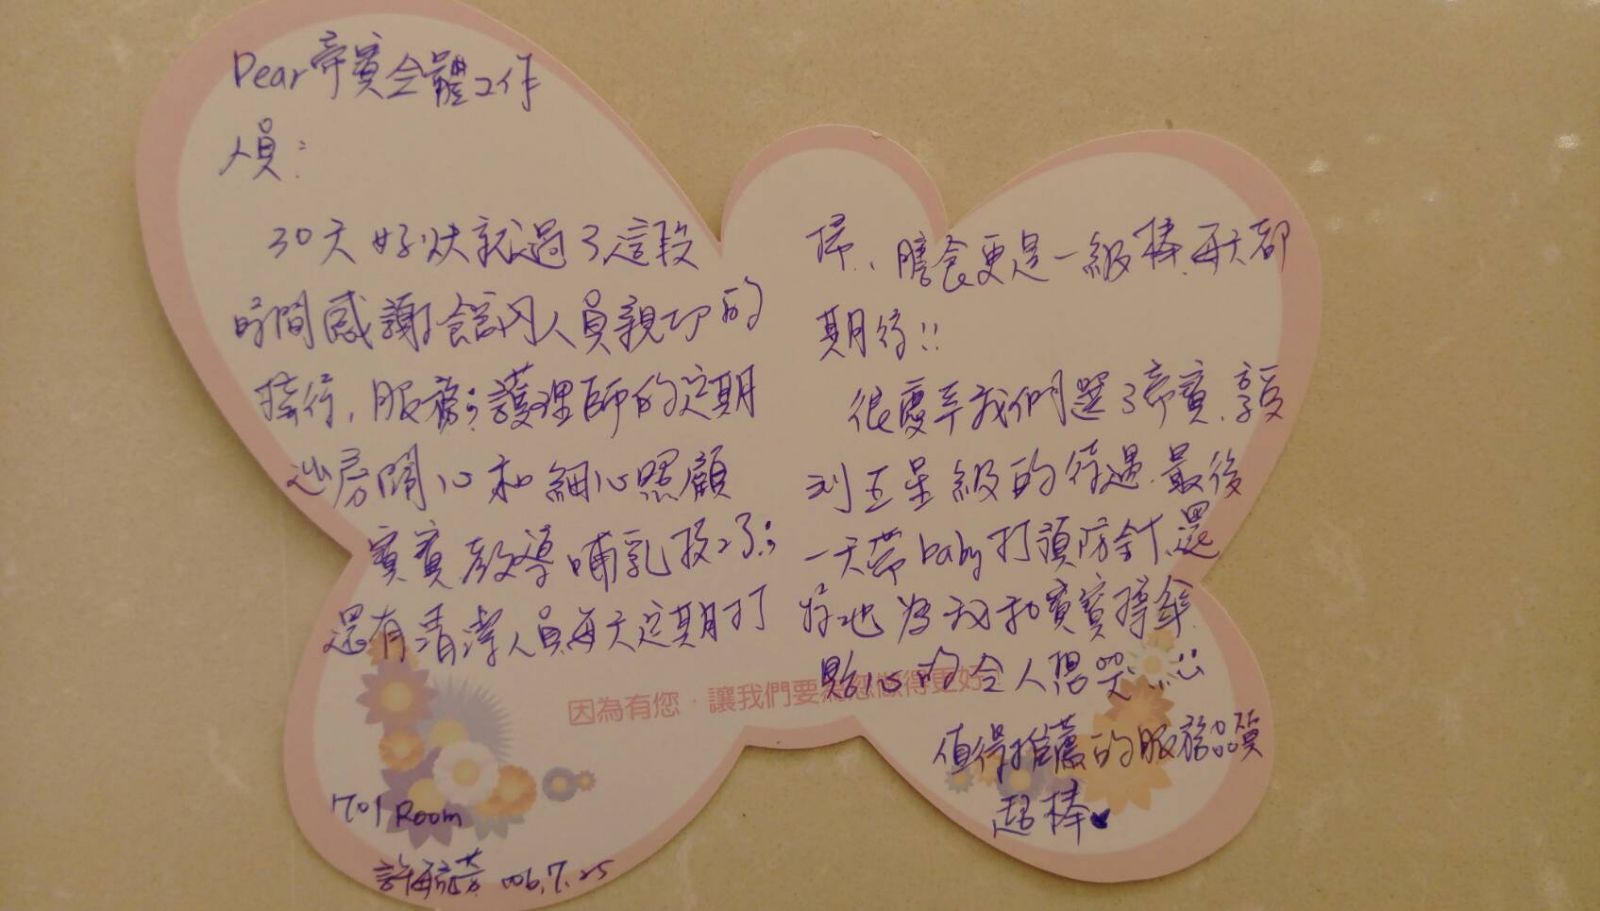 Dear 帝寶全體工作
人員：
30天好快就過了這段
時間感謝館內人員親切的
接待，服務；護理師的定期
巡房關心和細心照顧
寶寶教導哺乳技巧；
還有清潔人員每天定期打
掃、膳食更是一級棒、每天都
期待!!
很慶幸我們選了帝寶、享受
到五星級的待遇、最後
一天帶baby打預防針、還
好地為我和寶寶撐傘、
貼心的令人想哭
值得推薦的服務品質
超棒
因為有您，讓我們要為您做得更好
701 Room
許 106.7.25